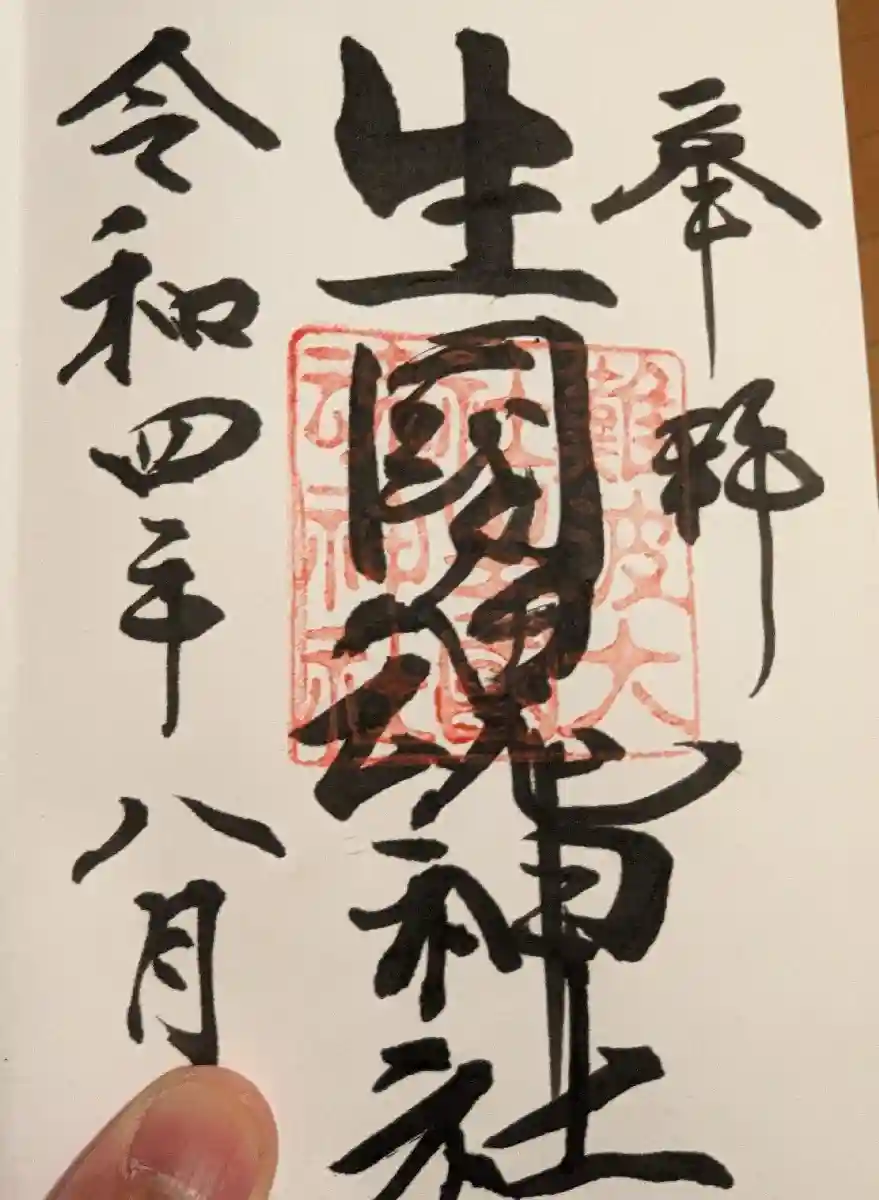 奉拝
生國魂神社
難波大社生國魂神社
令和四年八月